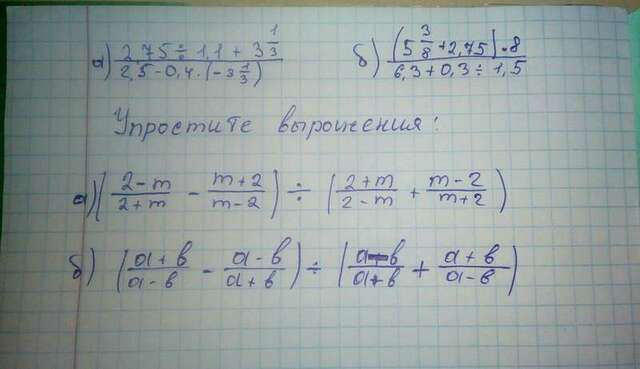 а) (2,75 ÷ 1,1 + 3 1/3) / (2,5 - 0,4 · (-3 1/3)) б) ((5 3/8 + 2,75) · 8) / (6,3 + 0,3 ÷ 1,5)
Упростите выражения:
а) ((2-m)/(2+m) - (m+2)/(m-2)) ÷ ((2+m)/(2-m) + (m-2)/(m+2))
б) ((a+b)/(a-b) - (a-b)/(a+b)) ÷ ((a-b)/(a+b) + (a+b)/(a-b))